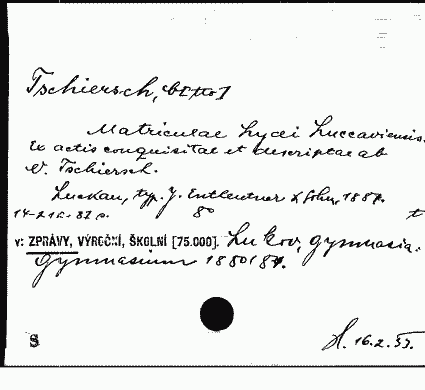 Tschiersch, Otto
Matriculae Lycei Luccaviensis.
Ex actis conquisitae et descriptae ab
O. Tschiersch.
Luckau, typ. J. Entleutner & Sohn, 1880.
14-21 s. 8°
v: ZPRÁVY, VÝROČNÍ, ŠKOLNÍ [75.000]. Lukov, gymnasia.
Gymnasium 1880/81.
S
16.2.53.